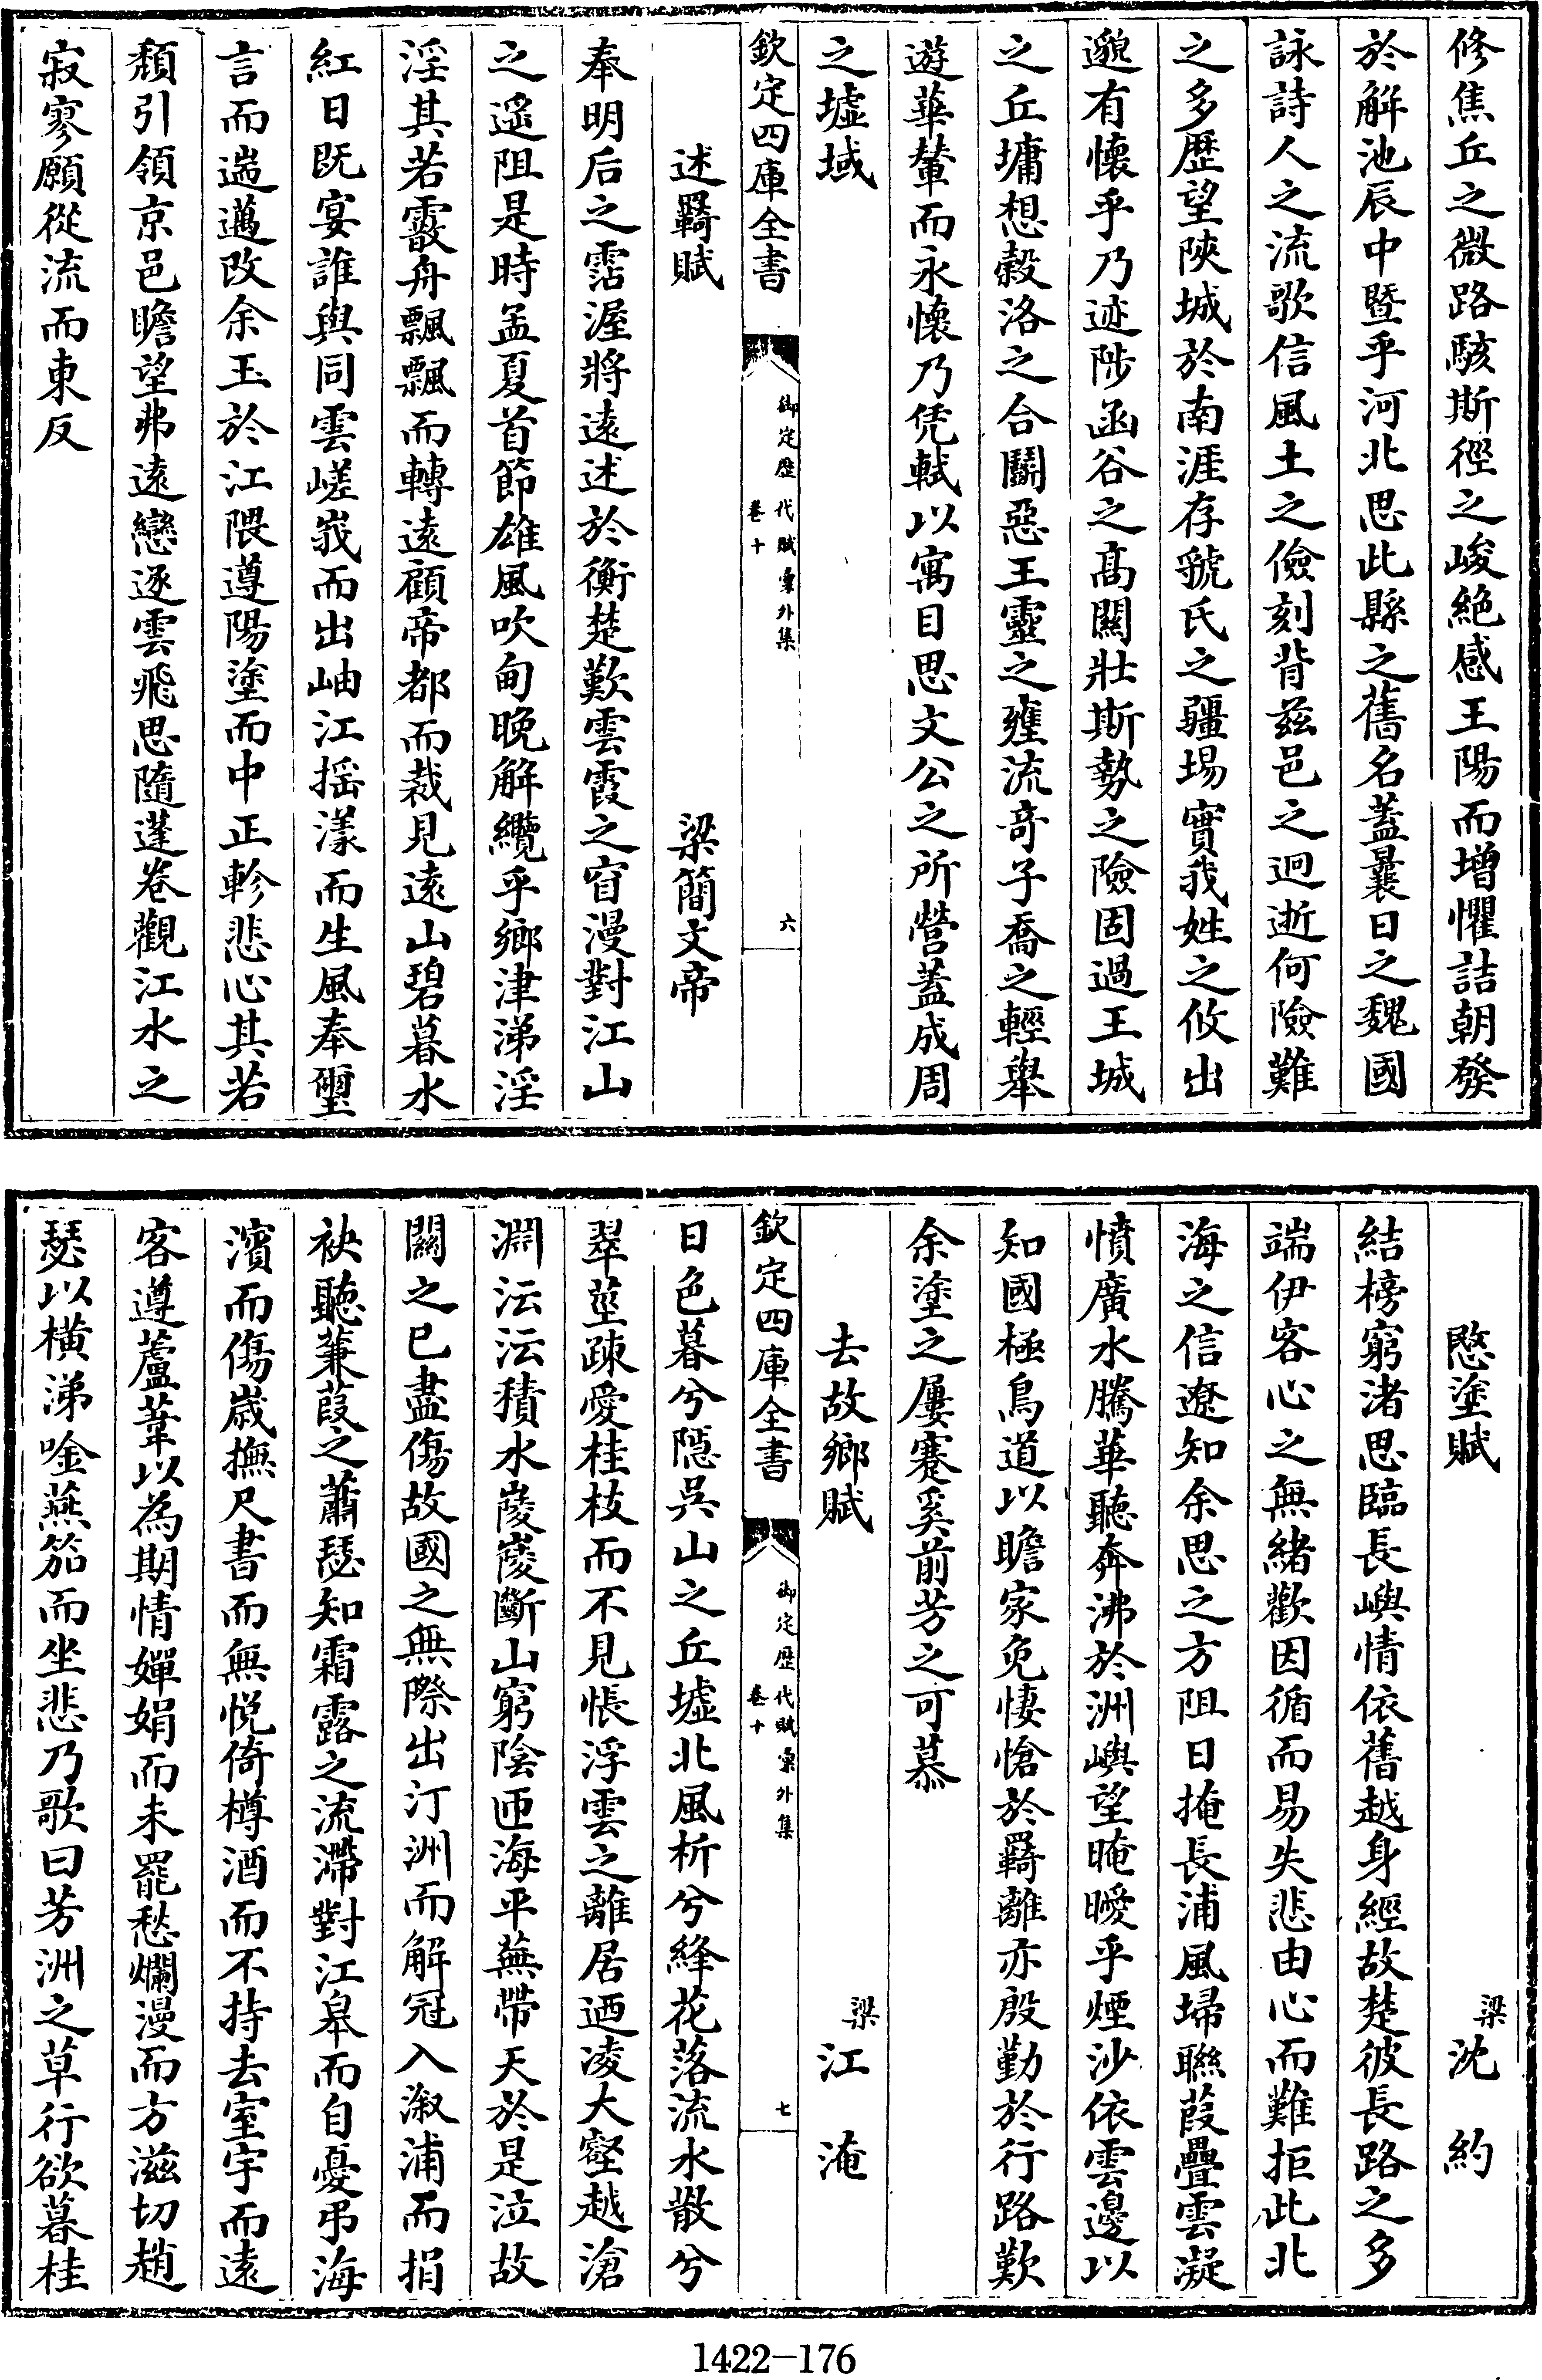 修焦丘之微路駭斯徑之峻絶感王陽而增懼詰朝發
於解池辰中暨乎河北思此縣之舊名蓋曩日之魏國
詠詩人之流歌信風土之儉刻背兹邑之迥逝何險難
之多歴望陜城於南涯存虢氏之疆埸實我姓之攸出
邈有懷乎乃迹陟函谷之高關壯斯勢之險固過王城
之丘墉想榖洛之合鬭惡王靈之壅流竒子喬之輕舉
遊華輦而永懷乃凭軾以寓目思文公之所營蓋成周
之墟域
欽定四庫全書
御定歴代賦彙外集
卷十
六
述羇賦 梁簡文帝
奉明后之霑渥將逺述於衡楚歎雲霞之窅漫對江山
之遥阻是時孟夏首節雄風吹甸晩解纜乎鄉津涕淫
淫其若霰舟飄飄而轉逺顧帝都而裁見逺山碧暮水
紅日既宴誰與同雲嵯峩而出岫江揺漾而生風奉璽
言而遄邁改余玉於江隈遵陽塗而中正軫悲心其若
頽引領京邑瞻望弗逺戀逐雲飛思隨蓬卷觀江水之
寂寥願從流而東反
愍塗賦 梁沈約
結榜窮渚思臨長嶼情依舊越身經故楚彼長路之多
端伊客心之無緒歡因循而易失悲由心而難拒此北
海之信遼知余思之方阻日掩長浦風埽聯葭疊雲凝
憤廣水騰華聽奔沸於洲嶼望晻曖乎煙沙依雲邊以
知國極鳥道以瞻家免悽愴於羇離亦殷勤於行路歎
余塗之屢蹇奚前芳之可慕
去故鄉賦 梁江淹
欽定四庫全書
御定歴代賦彙外集
卷十
七
日色暮兮隠吳山之丘墟北風析兮絳花落流水散兮
翠莖疎愛桂枝而不見悵浮雲之離居迺凌大壑越滄
淵沄沄積水崚崚斷山窮陰匝海平蕪帶天於是泣故
關之已盡傷故國之無際出汀洲而解冠入溆浦而捐
袂聽蒹葭之蕭瑟知霜露之流滯對江皋而自憂弔海
濱而傷嵗撫尺書而無悦倚樽酒而不持去室宇而逺
客遵蘆葦以為期情嬋娟而未罷愁爛漫而方滋切趙
瑟以横涕唫燕笳而坐悲乃歌曰芳洲之草行欲暮桂
1422-176